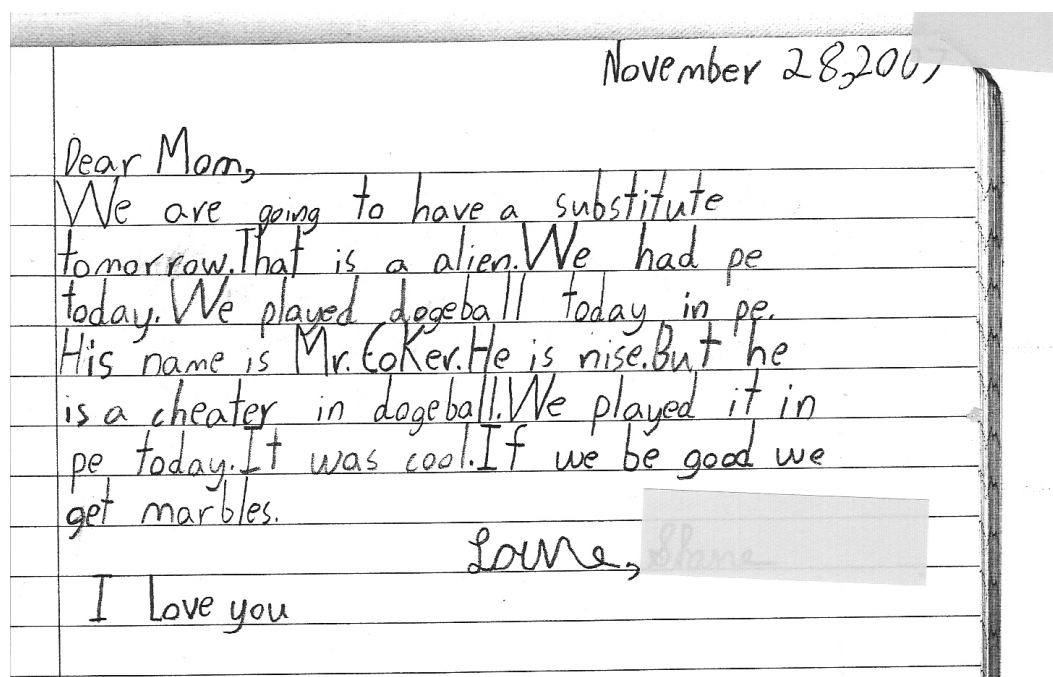 November 28, 2007
Dear Mom,
We are going to have a substitute
tomorrow. That is a alien. We had pe
today. We played dogeball today in pe.
His name is Mr. Coker. He is nise. But he
is a cheater in dogeball. We played it in
pe today. It was cool. If we be good we
get marbles.
Love,
I Love you